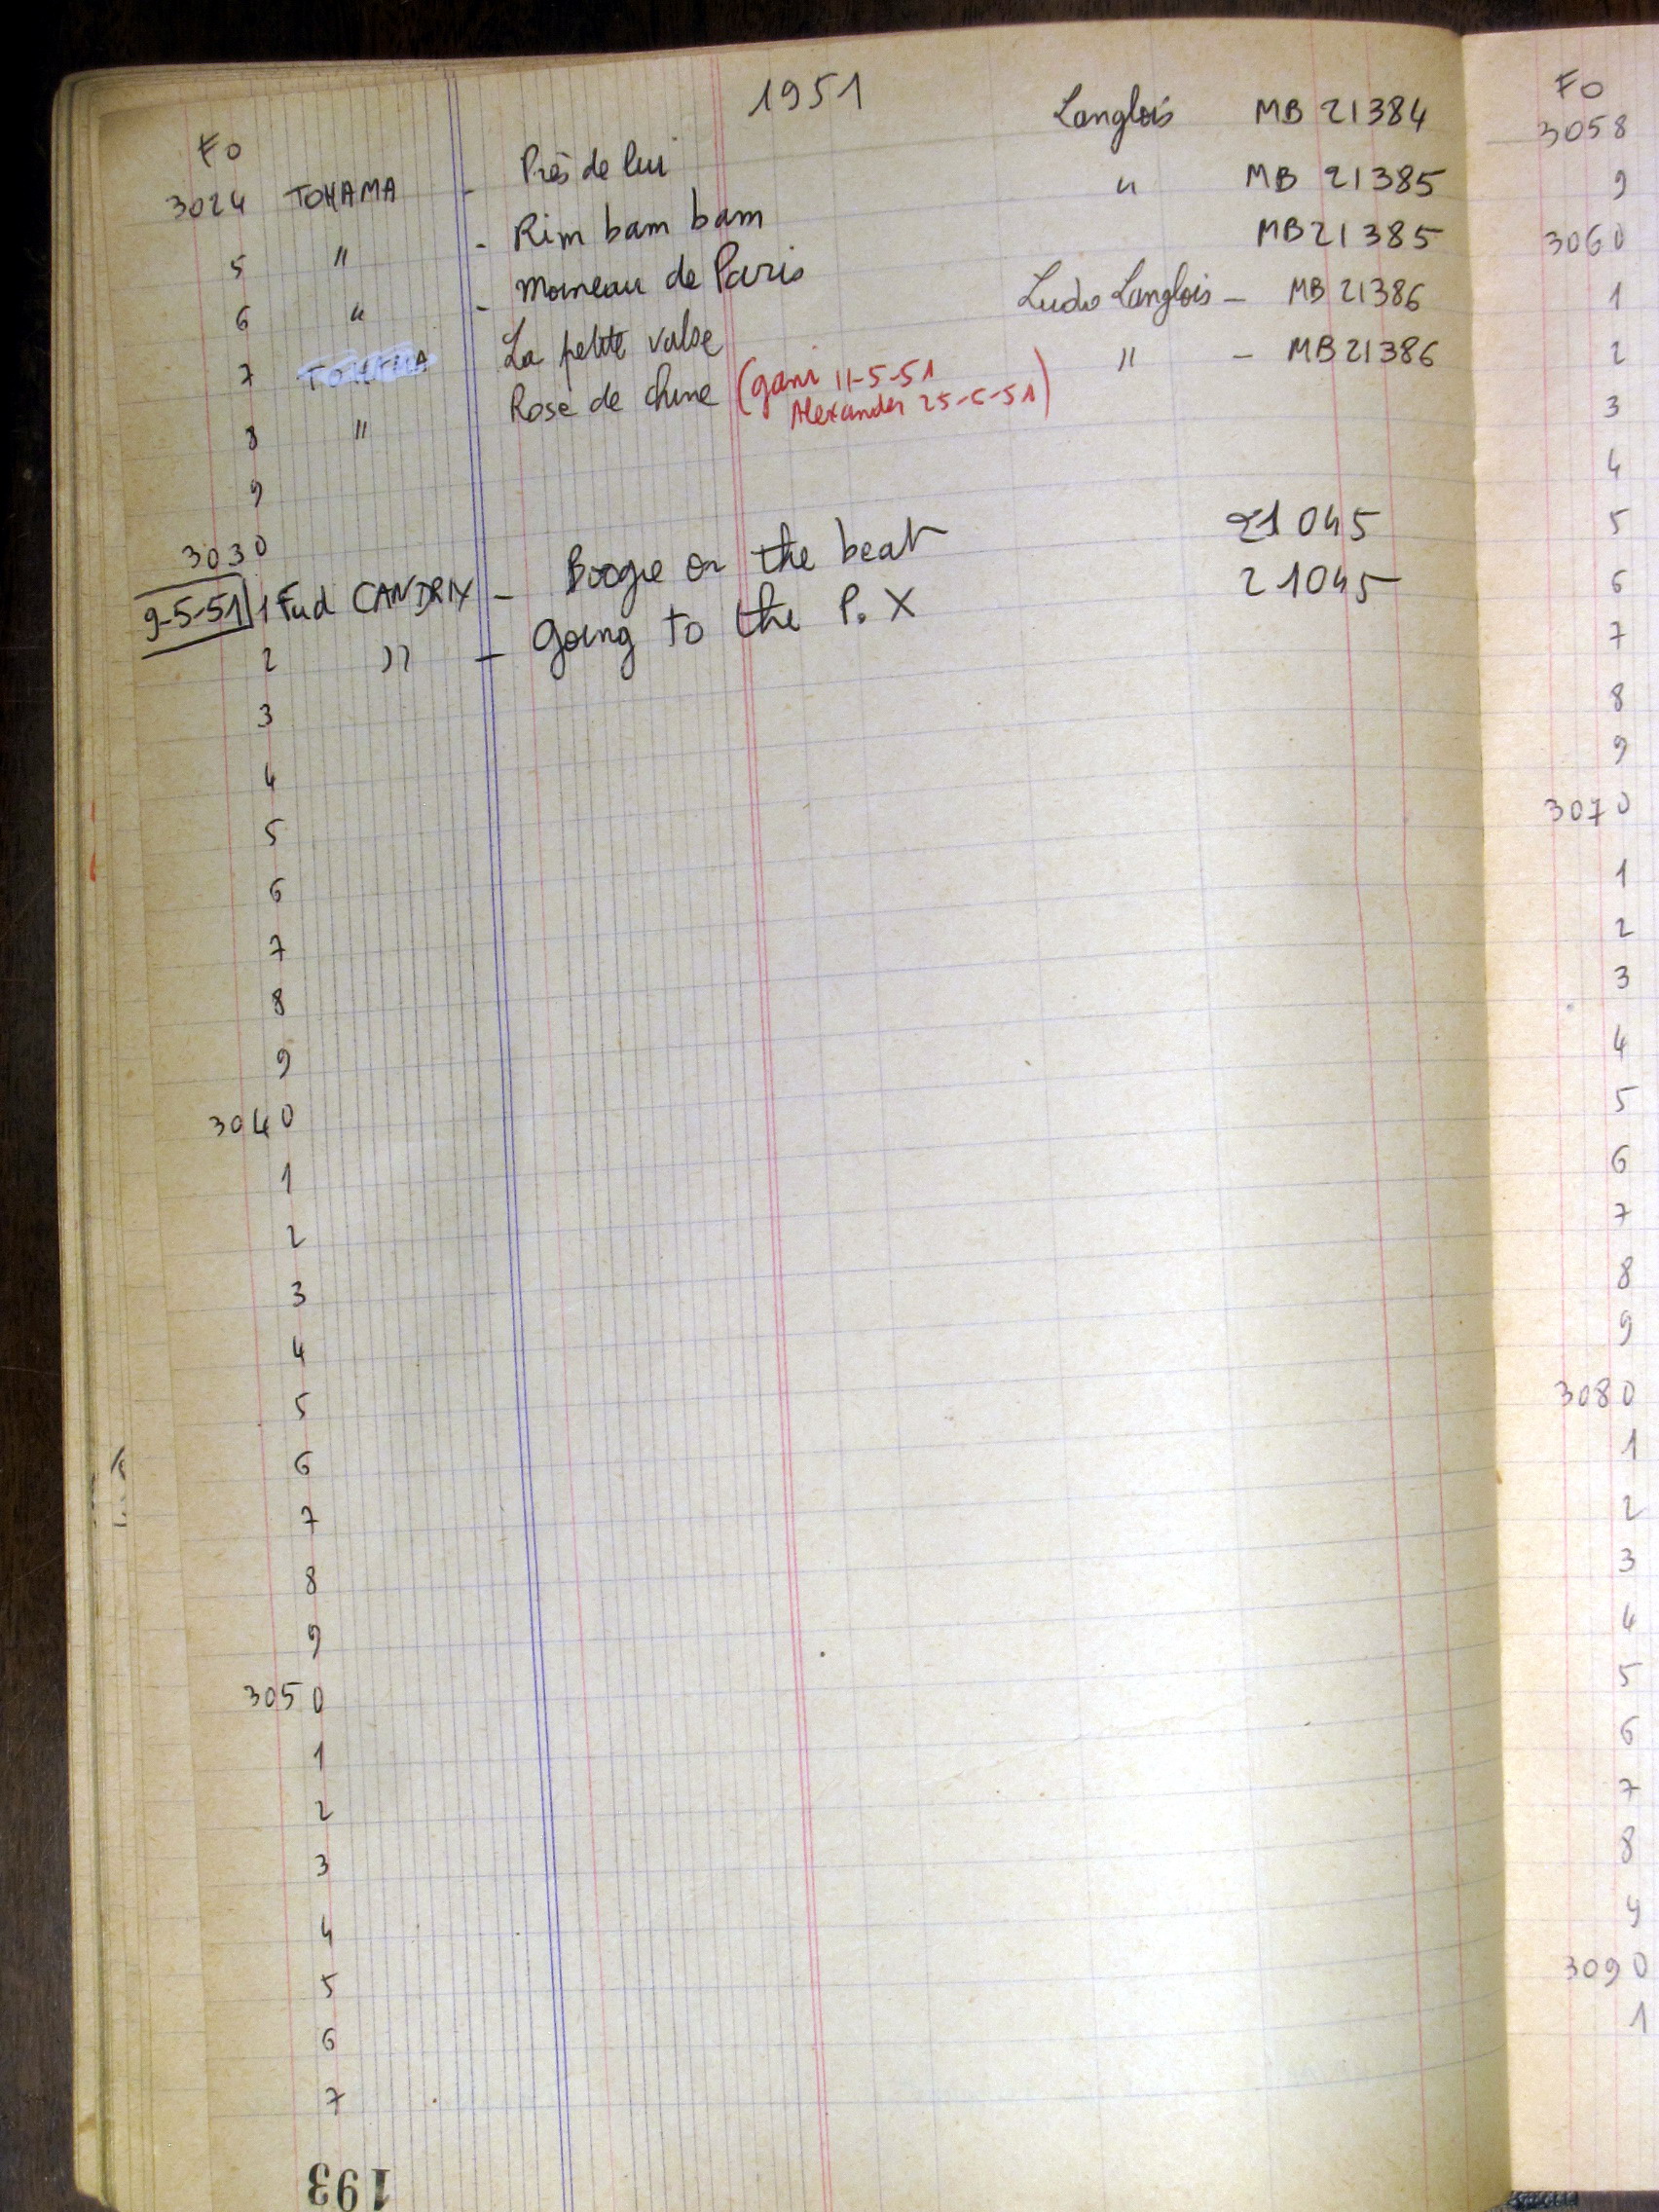 1951
Fo
3024 TOHAMA - Près de lui Langlois MB 21384
5 " - Rim bam bam " MB 21385
6 " - Moineau de Paris MB 21385
7 TOHAMA La petite valse Ludo Langlois - MB 21386
8 " Rose de chine (gani 11-5-51 " - MB 21386
Alexander 25-6-51)
9
3030
9-5-51 1 Fud CANDRIX - Boogie on the beat 21045
2 " - Going to the P. X 21045
3
4
5
6
7
8
9
3040
1
2
3
4
5
6
7
8
9
3050
1
2
3
4
5
6
7
193
Fo
3058
9
3060
1
2
3
4
5
6
7
8
9
3070
1
2
3
4
5
6
7
8
9
3080
1
2
3
4
5
6
7
8
9
3090
1